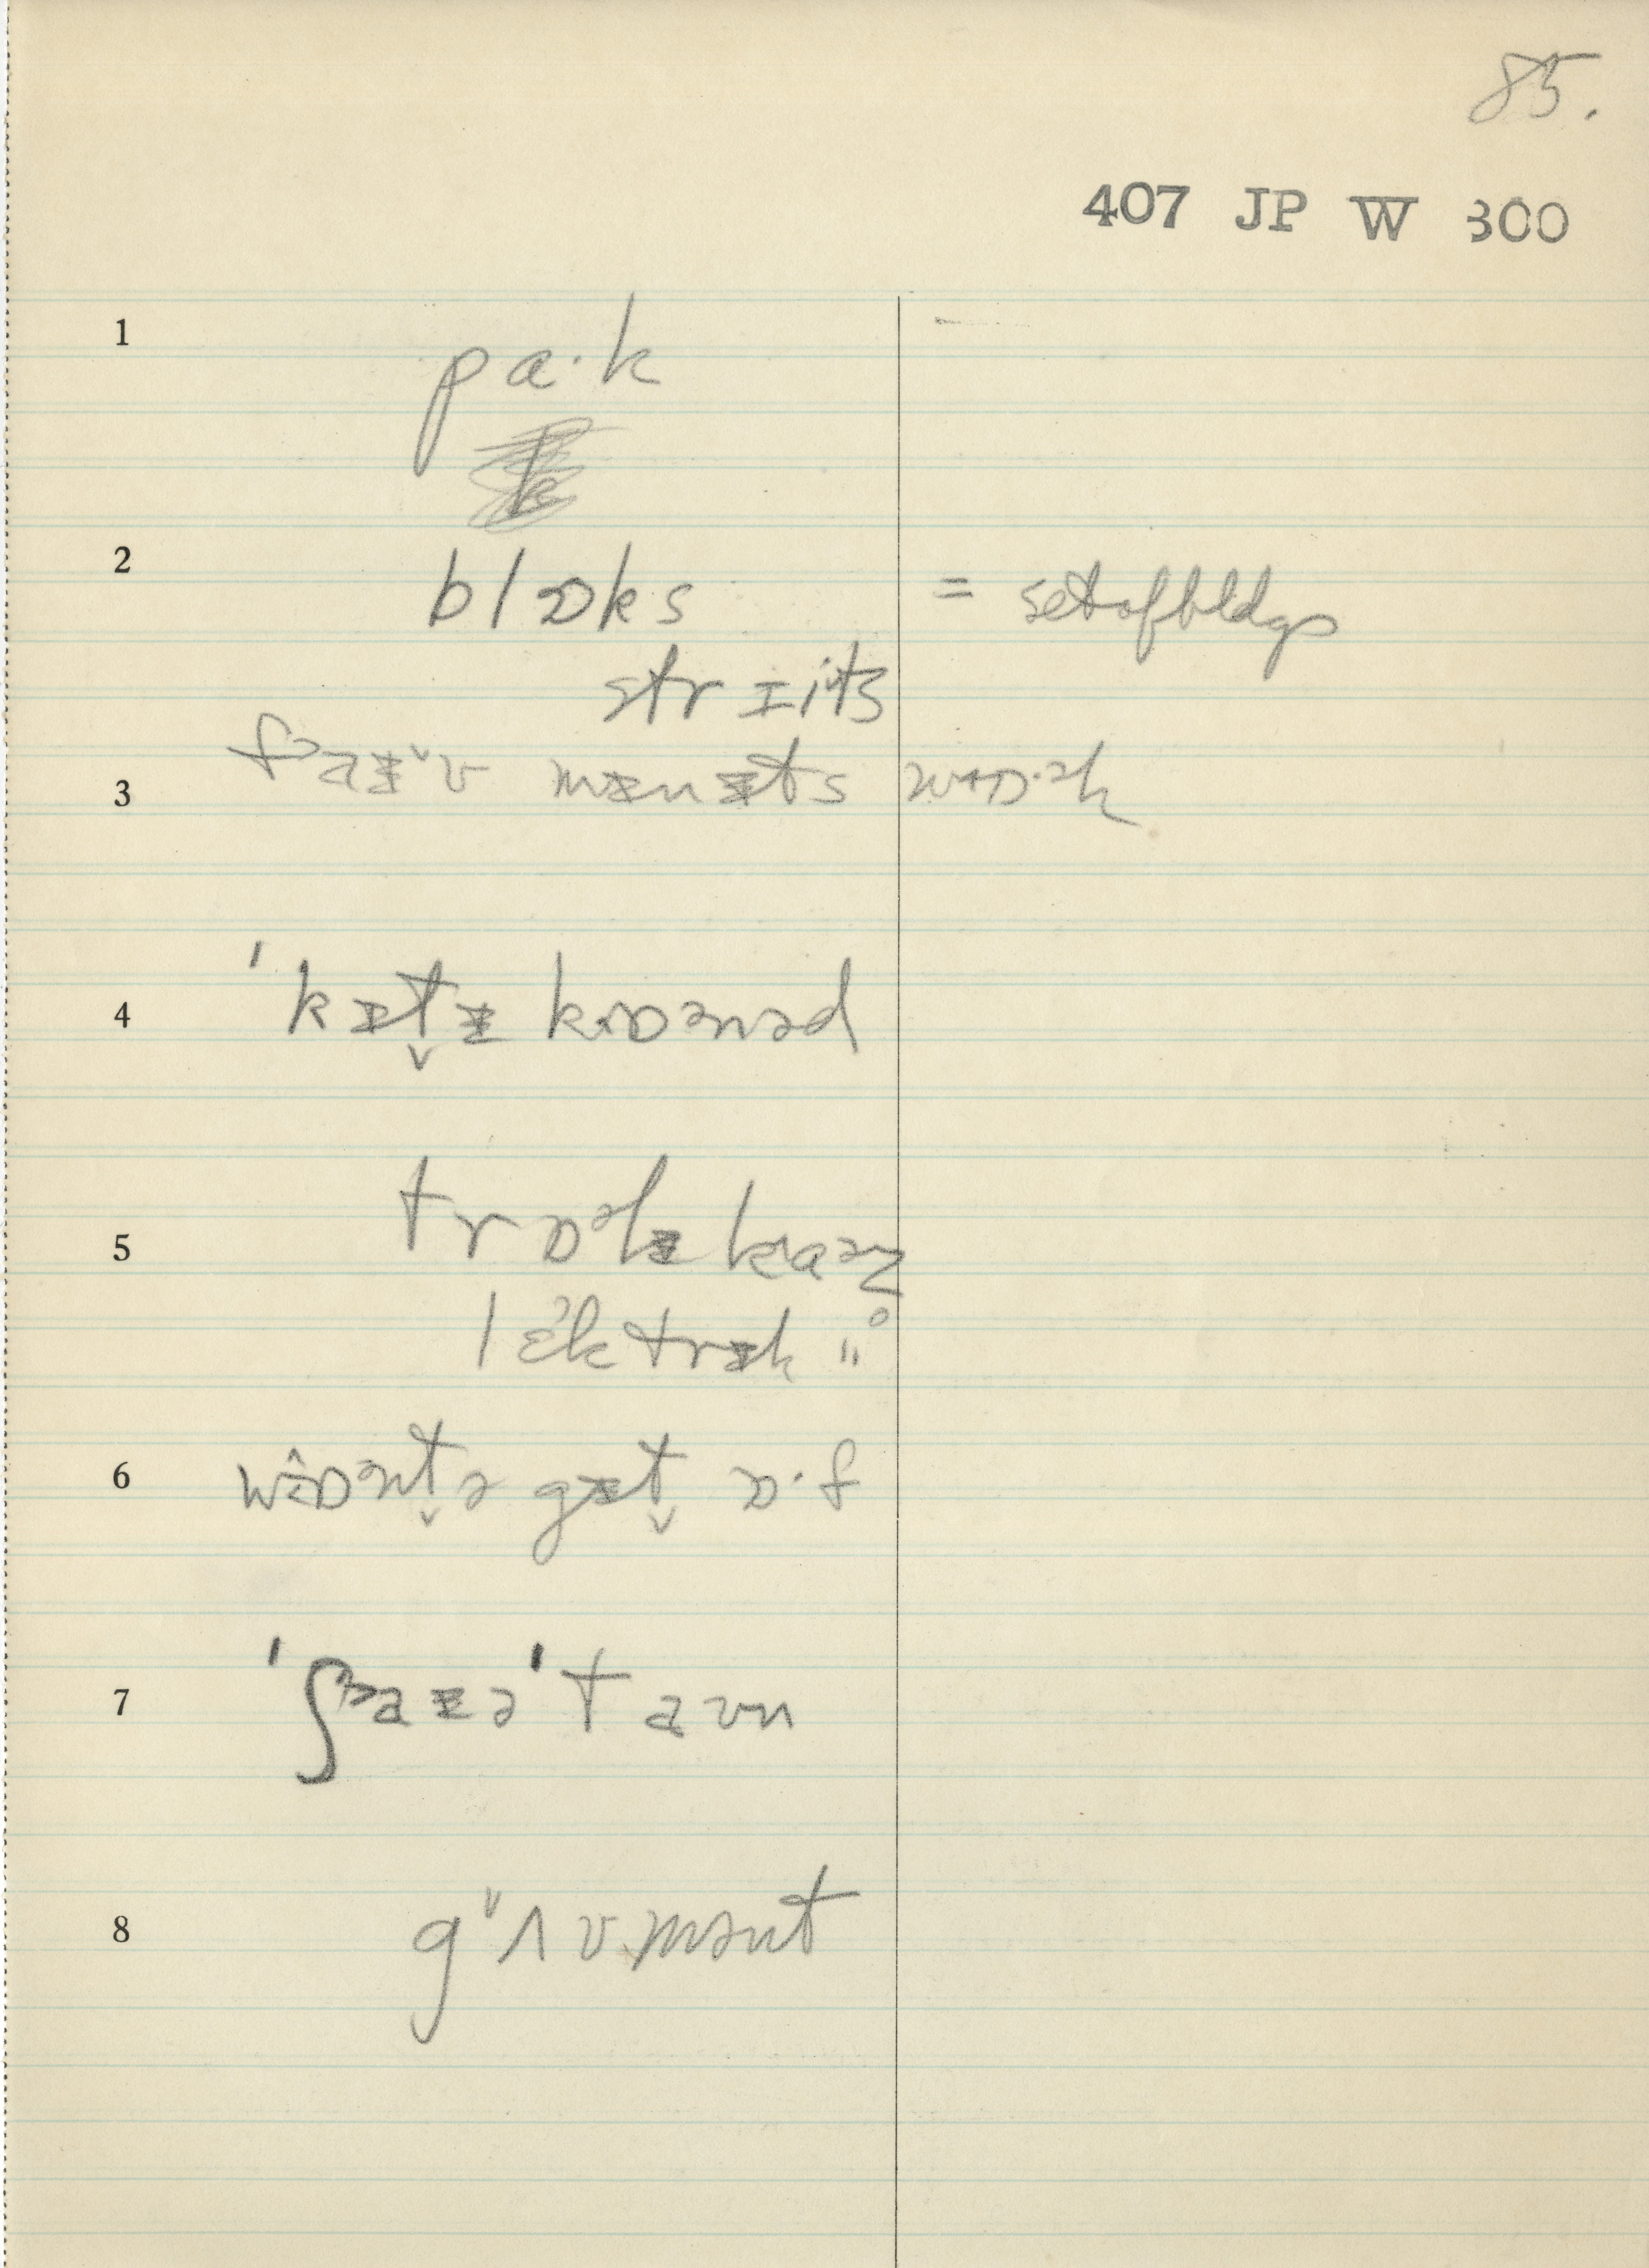 85.
407 JP W 300
1 pa·k
2 blɒks = set of bldgs
strɪits
3 fᵊaɪˇv mɪnɪts wɒ·ᵊk
4 ˈkɪt̬ɪ kɒənəd
5 trɒᵊlɪ kaəz
lɛ́ktrɪk "°
6 wɒᵊnt̬ə gɪt̬ ɒ·f
7 ˈʃᵊaɪəˈtaʊn
8 gʌvmənt